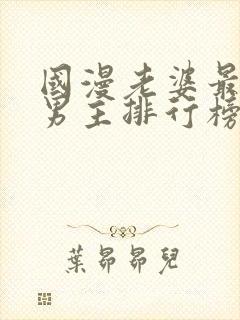 國漫老婆最
男主排行榜
葉昴昴兒